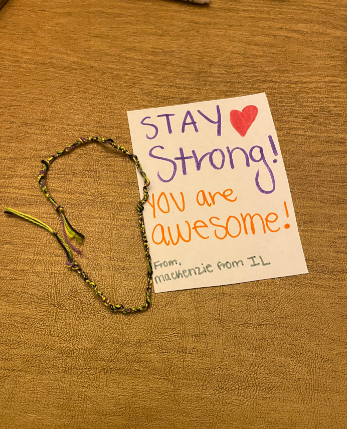 STAY
Strong!
You are
awesome!
From,
mackenzie from IL